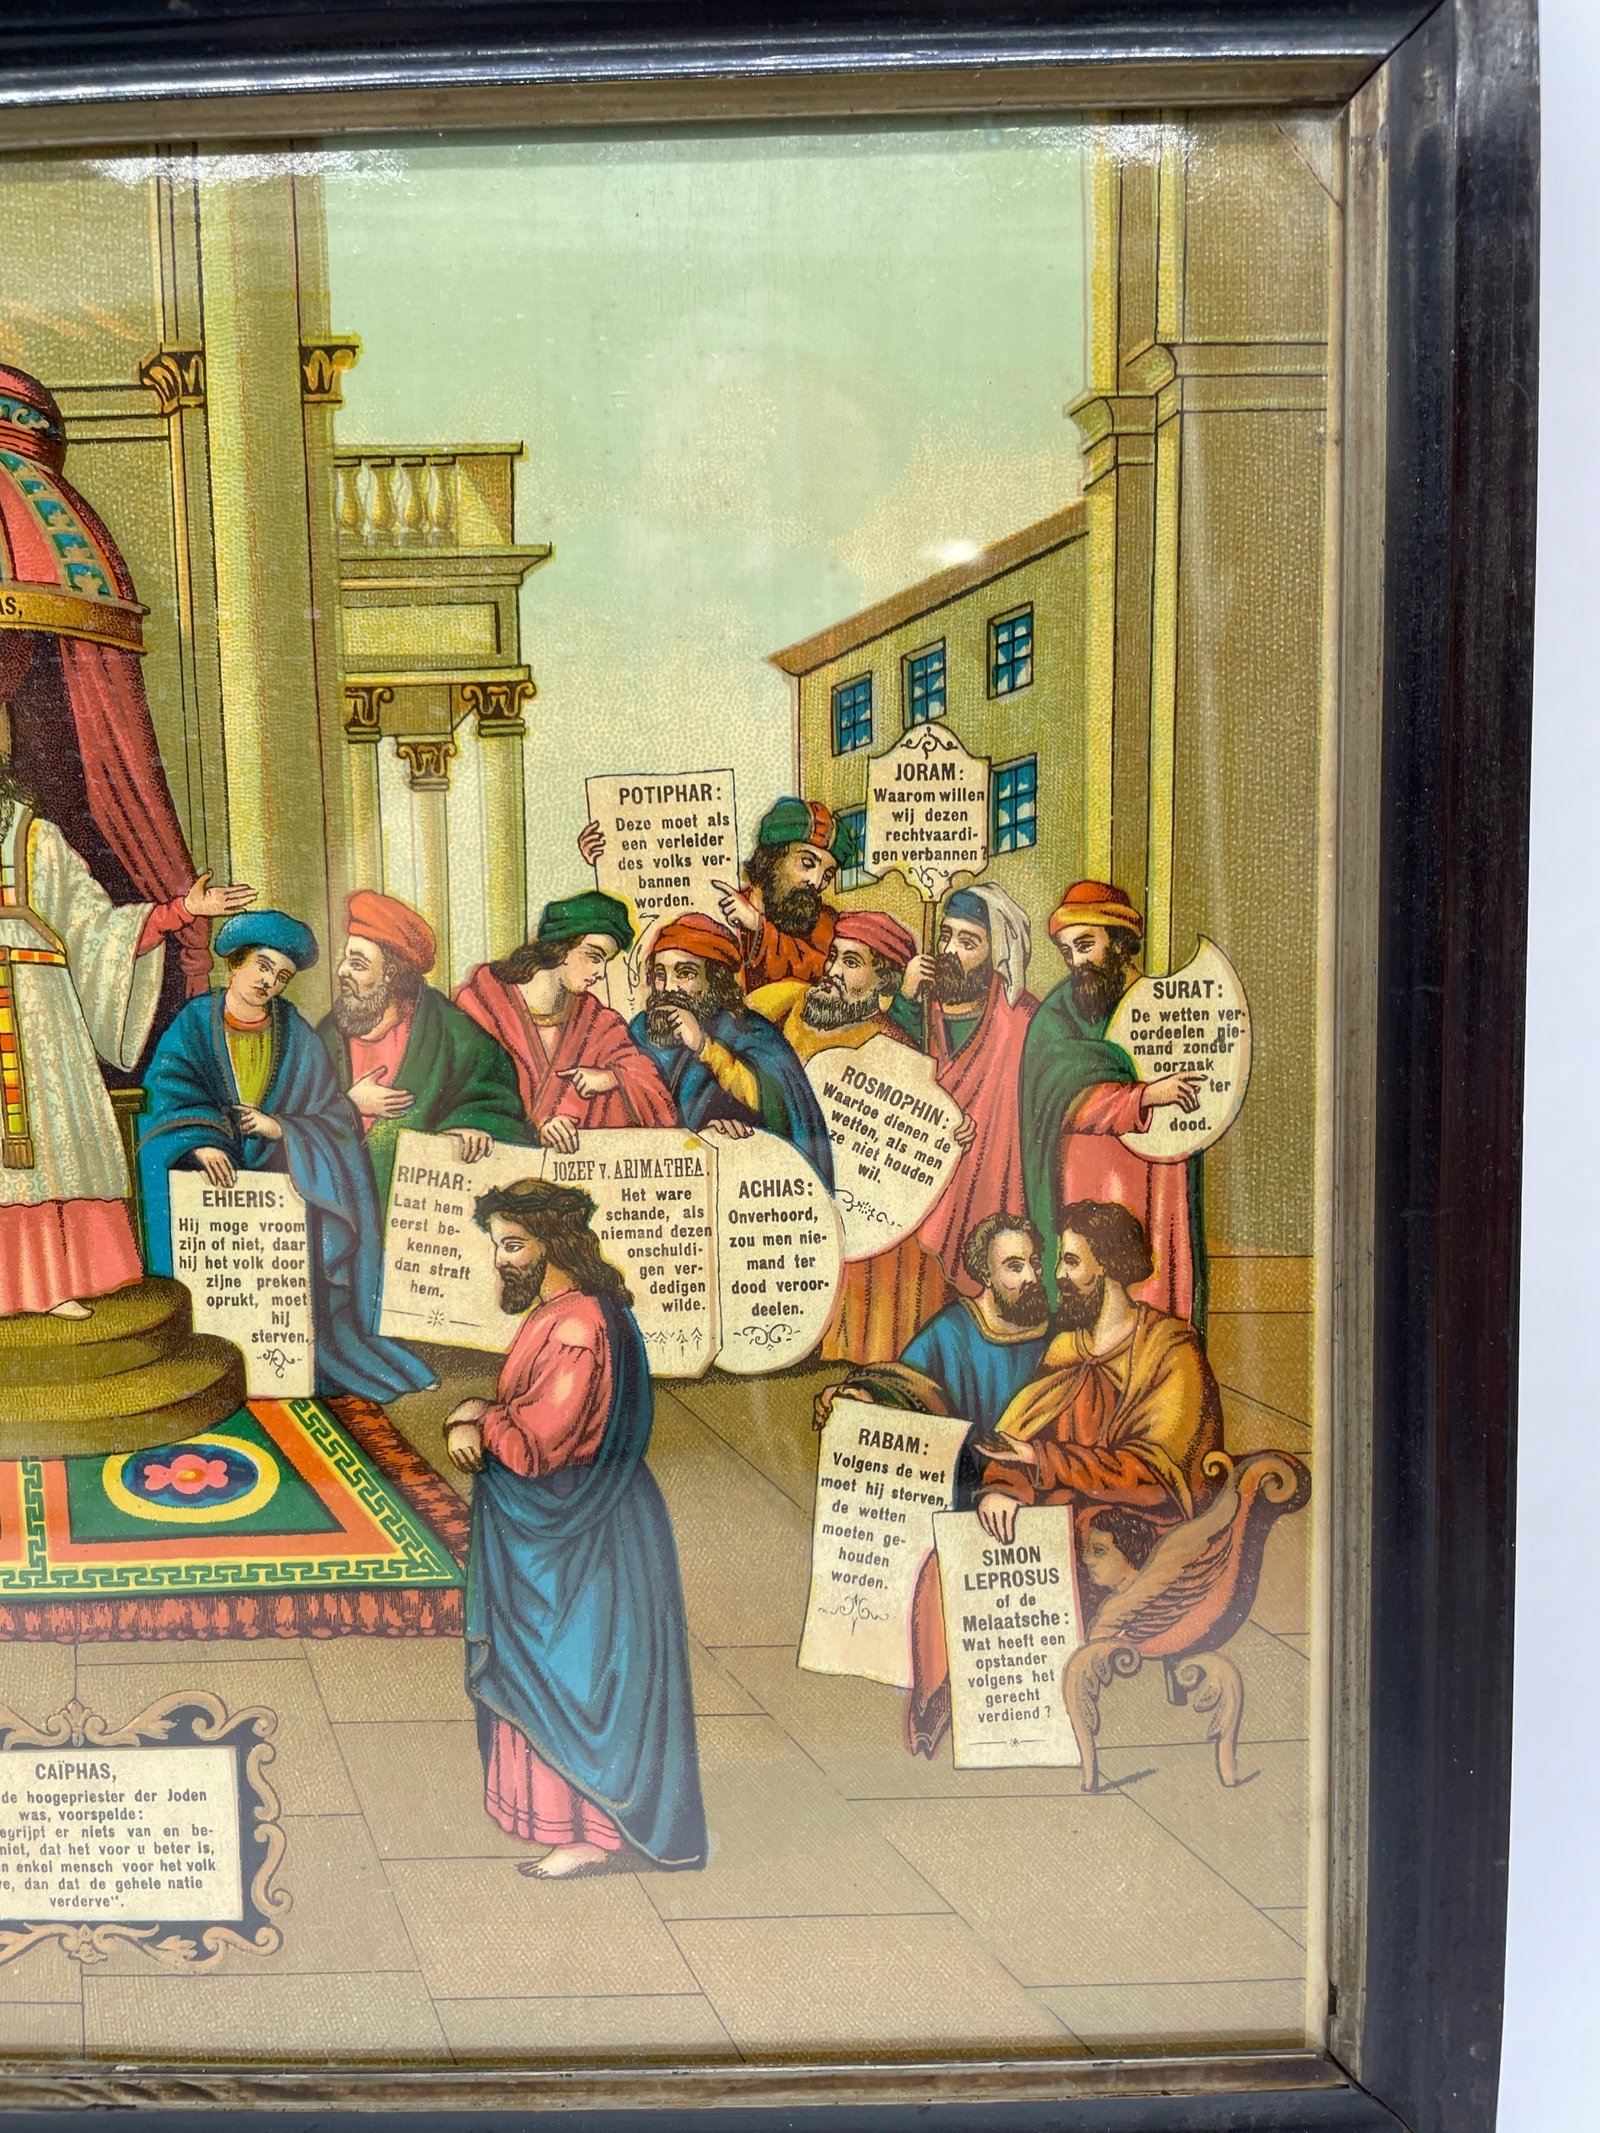 AS,
POTIPHAR:
Deze moet als
een verleider
des volks ver-
bannen
worden.
JORAM:
Waarom willen
wij dezen
rechtvaardi-
gen verbannen?
SURAT:
De wetten ver-
oordeelen nie-
mand zonder
oorzaak
ter
dood.
ROSMOPHIN:
Waartoe dienen de
wetten, als men
ze niet houden
wil.
EHIERIS:
Hij moge vroom
zijn of niet, daar
hij het volk door
zijne preken
oprukt, moet
hij
sterven.
RIPHAR:
Laat hem
eerst be-
kennen,
dan straft
hem.
JOZEF v. ARIMATHEA.
Het ware
schande, als
niemand dezen
onschuldi-
gen ver-
dedigen
wilde.
ACHIAS:
Onverhoord,
zou men nie-
mand ter
dood veroor-
deelen.
RABAM:
Volgens de wet
moet hij sterven,
de wetten
moeten ge-
houden
worden.
SIMON
LEPROSUS
of de
Melaatsche:
Wat heeft een
opstander
volgens het
gerecht
verdiend?
CAÏPHAS,
de hoogepriester der Joden
was, voorspelde:
egrijpt er niets van en be-
niet, dat het voor u beter is,
n enkel mensch voor het volk
ve, dan dat de gehele natie
verderve“.